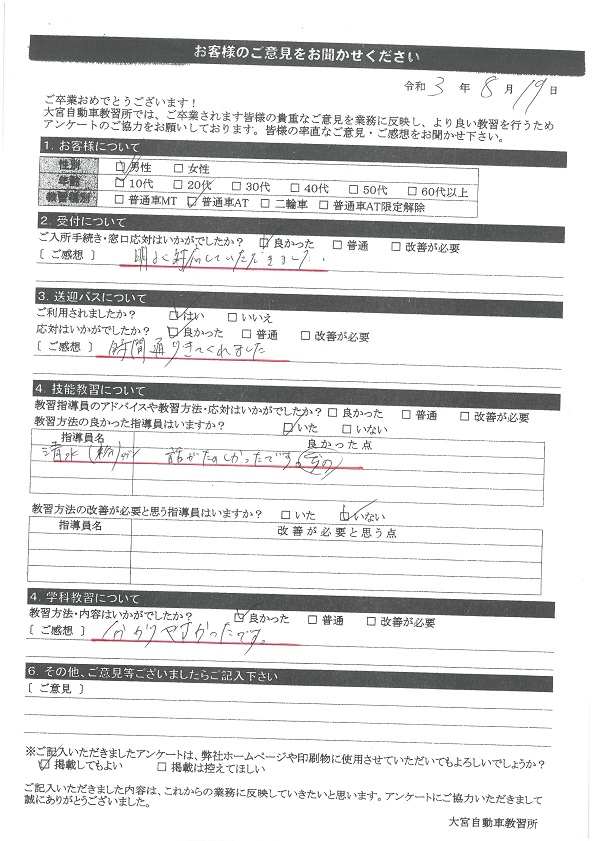 お客様のご意見をお聞かせください
令和 3 年 8 月 19 日
ご卒業おめでとうございます！
大宮自動車教習所では、ご卒業されます皆様の貴重なご意見を業務に反映し、より良い教習を行うため
アンケートのご協力をお願いしております。皆様の率直なご意見・ご感想をお聞かせ下さい。
1. お客様について
性別 ☑男性 □女性
年齢 ☑10代 □20代 □30代 □40代 □50代 □60代以上
教習種別 □普通車MT ☑普通車AT □二輪車 □普通車AT限定解除
2. 受付について
ご入所手続き・窓口応対はいかがでしたか？ ☑良かった □普通 □改善が必要
［ご感想］ 明るく対応していただきました.
3. 送迎バスについて
ご利用されましたか？ ☑はい □いいえ
応対はいかがでしたか？ ☑良かった □普通 □改善が必要
［ご感想］ 時間通りきてくれました
4. 技能教習について
教習指導員のアドバイスや教習方法・応対はいかがでしたか？ □良かった □普通 □改善が必要
教習方法の良かった指導員はいますか？ ☑いた □いない
指導員名 良かった点
清水 話がたのしかったです。
教習方法の改善が必要と思う指導員はいますか？ □いた ☑いない
指導員名 改善が必要と思う点
4. 学科教習について
教習方法・内容はいかがでしたか？ ☑良かった □普通 □改善が必要
［ご感想］ 分かりやすかったです。
6. その他、ご意見等ございましたらご記入下さい
［ご意見］
※ご記入いただきましたアンケートは、弊社ホームページや印刷物に使用させていただいてもよろしいでしょうか？
☑掲載してもよい □掲載は控えてほしい
ご記入いただきました内容は、これからの業務に反映していきたいと思います。アンケートにご協力いただきまして
誠にありがとうございました。
大宮自動車教習所